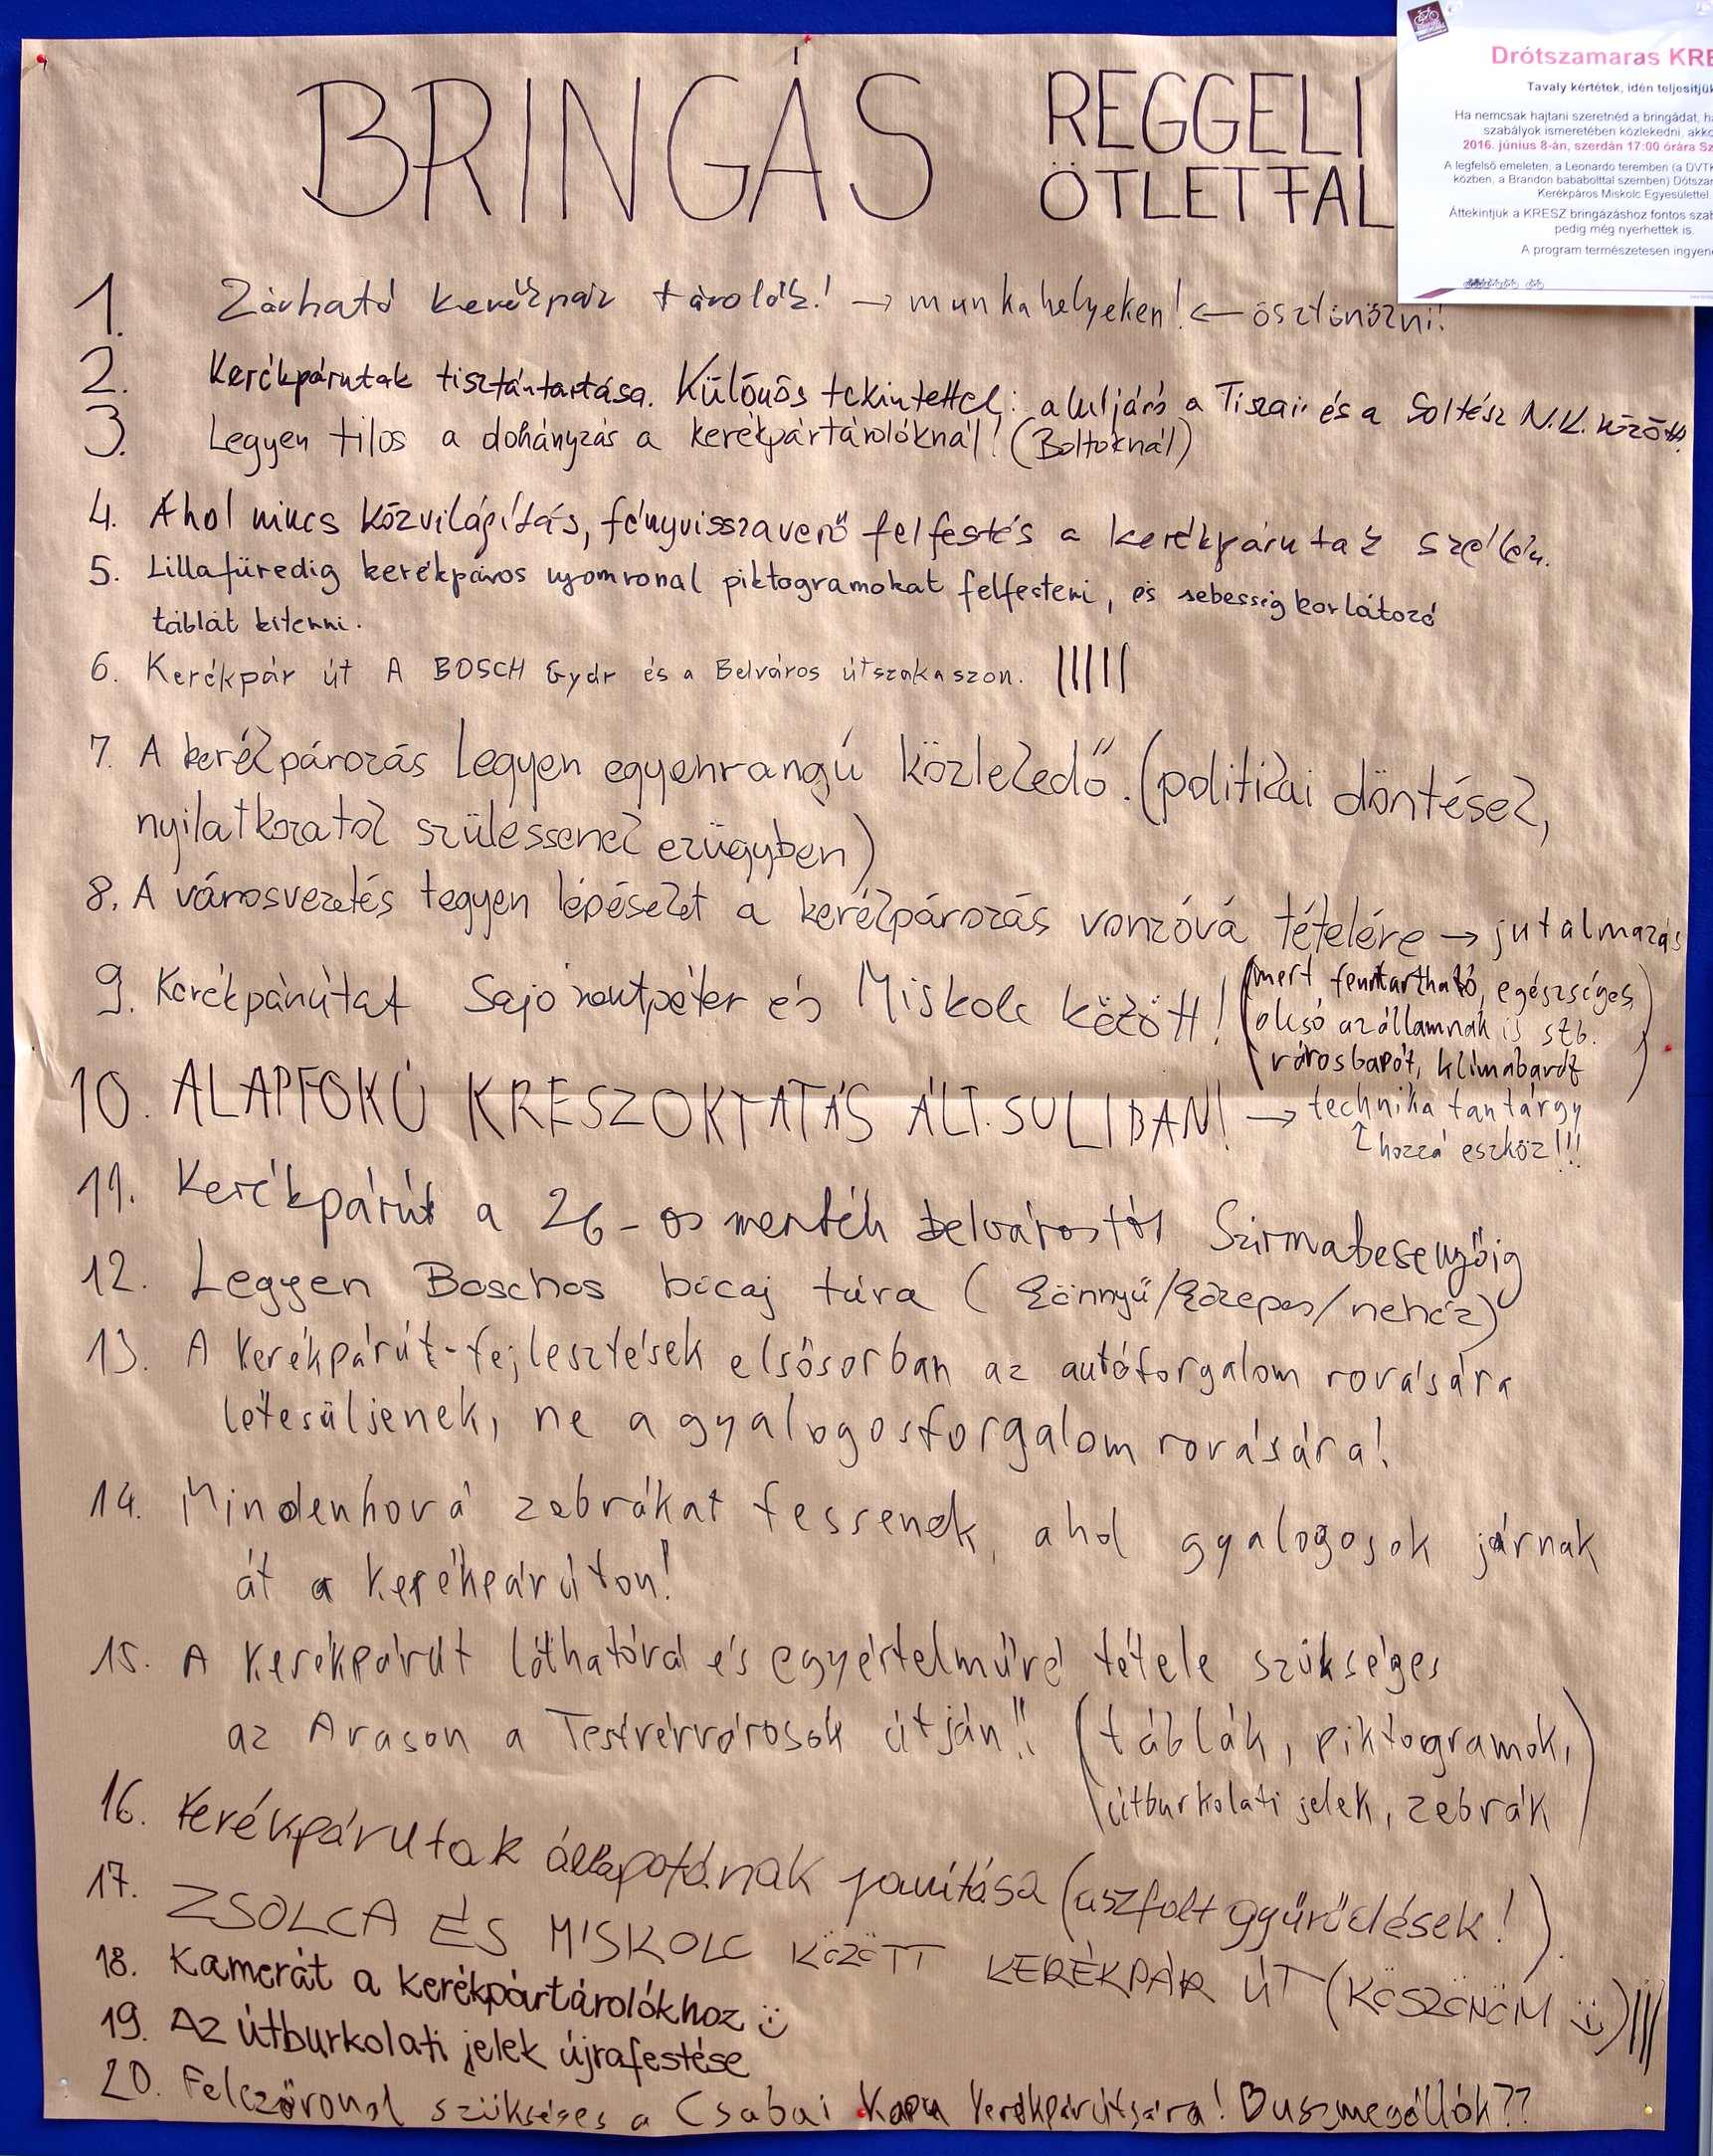 BRINGÁS REGGELI
ÖTLETFAL
Drótszamaras KRE
Tavaly kértétek, idén teljesítjük
Ha nemcsak hajtani szeretnéd a bringádat, ha
szabályok ismeretében közlekedni, akko
2016. június 8-án, szerdán 17:00 órára Sz
A legfelső emeleten, a Leonardo teremben (a DVTK
közben, a Brandon bababolttal szemben) Dótszar
Kerékpáros Miskolc Egyesülettel
Áttekintjük a KRESZ bringázáshoz fontos szab
pedig még nyerhettek is.
A program természetesen ingyene
1. Zárható kerékpár tárolók! → munkahelyeken! ← ösztönözni!
2. Kerékpárutak tisztántartása. Különös tekintettel: aluljáró a Tiszai és a Soltész N.K. között
3. Legyen tilos a dohányzás a kerékpártárolóknál! (Boltoknál)
4. Ahol nincs közvilágítás, fényvisszaverő felfestés a kerékpárutak szélén.
5. Lillafüredig kerékpáros nyomvonal piktogramokat felfesteni, és sebesség korlátozó
táblát kitenni.
6. Kerékpár út A BOSCH Gyár és a Belváros útszakaszon. |||||
7. A kerékpározás legyen egyenrangú közlekedő. (politikai döntések,
nyilatkozatok szülessenek ezügyben)
8. A városvezetés tegyen lépéseket a kerékpározás vonzóvá tételére → jutalmazás
(mert fenntartható, egészséges,
9. Kerékpárútat Sajószentpéter és Miskolc között!
olcsó az államnak is stb.
városbarát, klímabarát)
10. ALAPFOKÚ KRESZOKTATÁS ÁLT. SULIBAN! → technika tantárgy
hozzá eszköz!!!
11. Kerékpárút a 26-os mentén belvárostól Szirmabesenyőig
12. Legyen Boschos bicaj túra (könnyű/közepes/nehéz)
13. A kerékpárút-fejlesztések elsősorban az autóforgalom rovására
létesüljenek, ne a gyalogosforgalom rovására!
14. Mindenhová zebrákat fessenek, ahol gyalogosok járnak
át a kerékpárúton!
15. A kerékpárút láthatóvá és egyértelművé tétele szükséges
az Avason a Testvérvárosok útján!! (táblák, piktogramok,
útburkolati jelek, zebrák)
16. Kerékpárutak állapotának javítása (aszfalt gyűrődések!).
17. ZSOLCA ÉS MISKOLC KÖZÖTT KERÉKPÁR ÚT (KÖSZÖNÖM :)) |||
18. Kamerát a kerékpártárolókhoz :)
19. Az útburkolati jelek újrafestése
20. Felezővonal szükséges a Csabai Kapu kerékpárútjára! Buszmegállók??